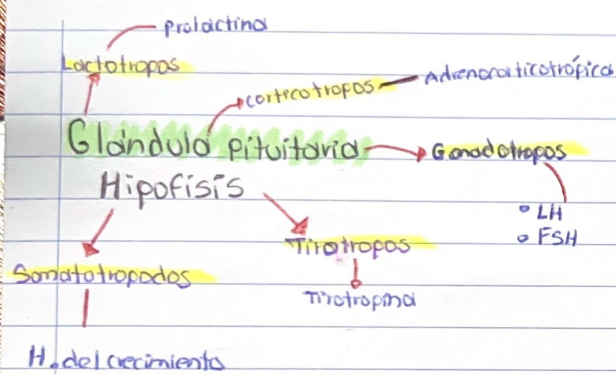 Prolactina
Lactotropos
corticotropos
Adrenocorticotrófica
Glándula pituitaria
Gonadotropos
Hipofisis
LH
FSH
Tirotropos
Somatotropodos
Tirotropina
H. del crecimiento